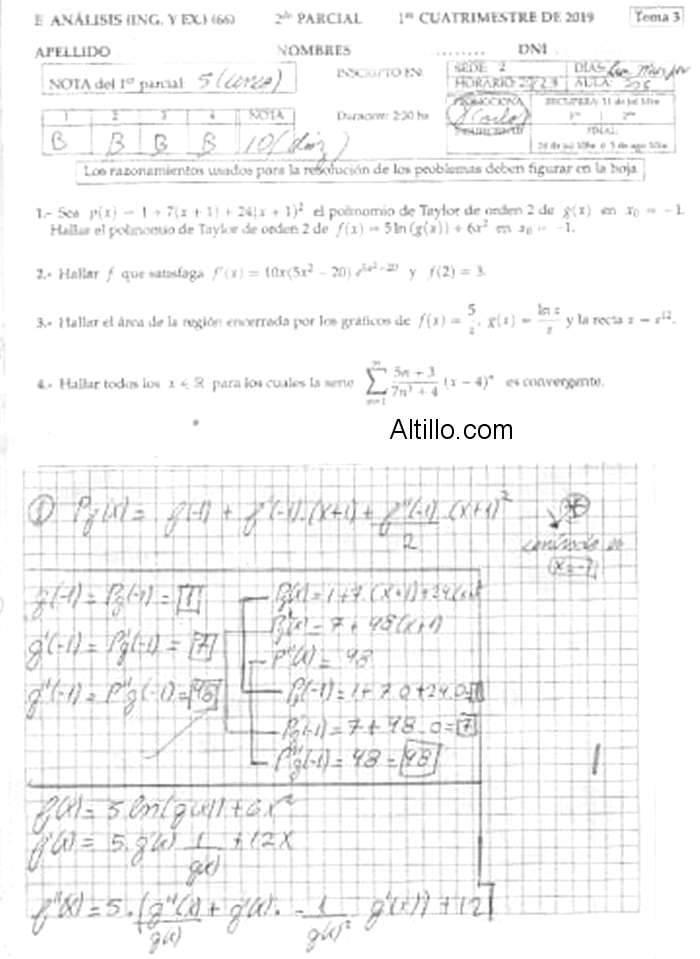 E ANÁLISIS (ING. Y EX.) (66) 2do PARCIAL 1er CUATRIMESTRE DE 2019 Tema 3
APELLIDO NOMBRES ........ DNI
NOTA del 1er parcial: 5 (cinco) INSCRIPTO EN: SEDE: 2 DÍAS:
HORARIO: AULA:
1 2 3 4 NOTA
B B B B 10 (diez)
Duración: 2:30 hs
PROMOCIONA
FINAL:
Los razonamientos usados para la resolución de los problemas deben figurar en la hoja
1.- Sea p(x) = 1 + 7(x + 1) + 24(x + 1)² el polinomio de Taylor de orden 2 de g(x) en x₀ = −1.
Hallar el polinomio de Taylor de orden 2 de f(x) = 5 ln(g(x)) + 6x² en x₀ = −1.
2.- Hallar f que satisfaga f'(x) = 10x(5x² − 20) e^(5x²−20) y f(2) = 3.
3.- Hallar el área de la región encerrada por los gráficos de f(x) = 5/x, g(x) = ln x/x y la recta x = e¹².
4.- Hallar todos los x ∈ ℝ para los cuales la serie ∑ n=1 ∞ (5n + 3)/(7n³ + 4) (x − 4)ⁿ es convergente.
Altillo.com
① Pf(x) = f(-1) + f'(-1).(x+1) + f''(-1)/2 .(x+1)²
centrado en
x=-1
g(-1) = Pg(-1) = 1
g'(-1) = Pg'(-1) = 7
g''(-1) = P''g(-1) = 48
Pg(x) = 1+7.(x+1)+24(x+1)²
Pg'(x) = 7 + 48(x+1)
P''(x) = 48
Pg(-1) = 1+7.0+24.0 = 1
Pg'(-1) = 7 + 48.0 = 7
Pg''(-1) = 48 = 48
f(x) = 5.ln(g(x)) + 6x²
f'(x) = 5.g'(x) 1/g(x) + 12x
f''(x) = 5.(g''(x)/g(x) + g'(x). -1/g(x)² g'(x)) + 12